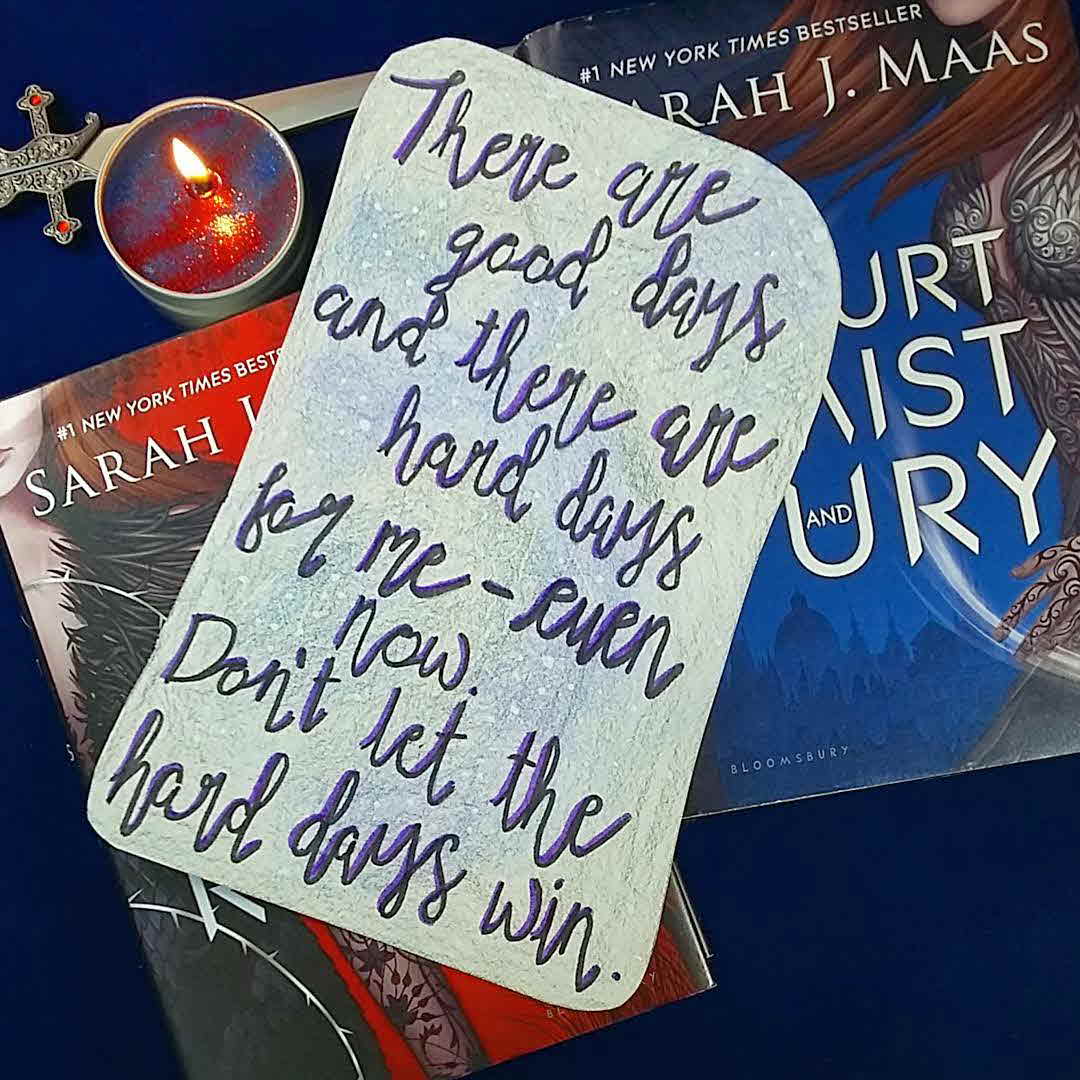 There are
good days
and there are
hard days
for me - even
now.
Don't let the
hard days win.
#1 NEW YORK TIMES BESTSELLER
ARAH J. MAAS
URT
MIST
AND
URY
BLOOMSBURY
#1 NEW YORK TIMES BESTS
SARAH J